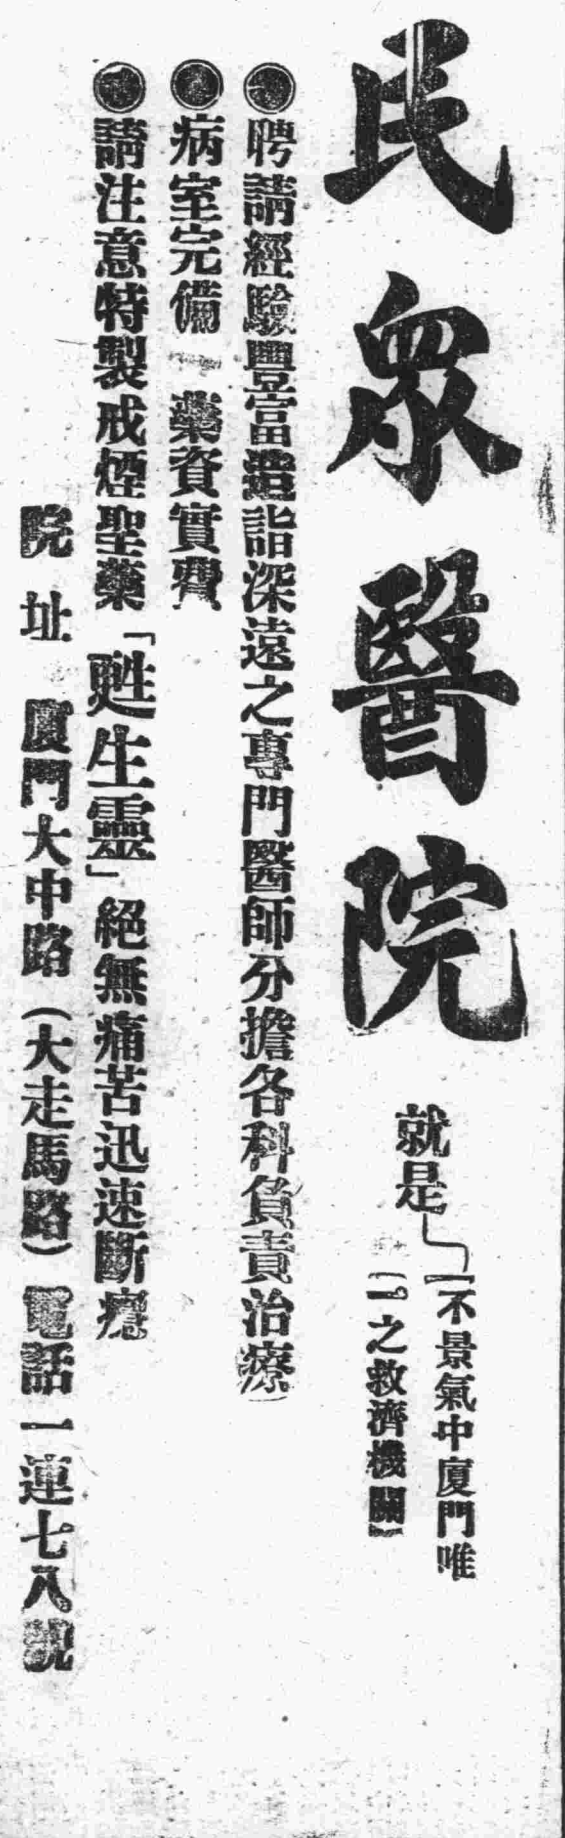 民眾醫院
就是
「不景氣中廈門唯
一」之救濟機關
聘請經驗豐富造詣深遠之專門醫師分擔各科負責治療
病室完備 藥資實費
請注意特製戒煙聖藥「甦生靈」絕無痛苦迅速斷癮
院址 廈門大中路(大走馬路)電話一連七八號